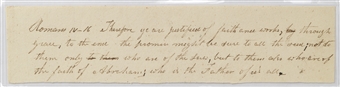 Romans 4-16 Therefore ye are justified of faith and works, through
grace, to the end the promise might be sure to all the seed; not to
them only who are of the law, but to them who are of
the faith of Abraham; who is the Father of us all.